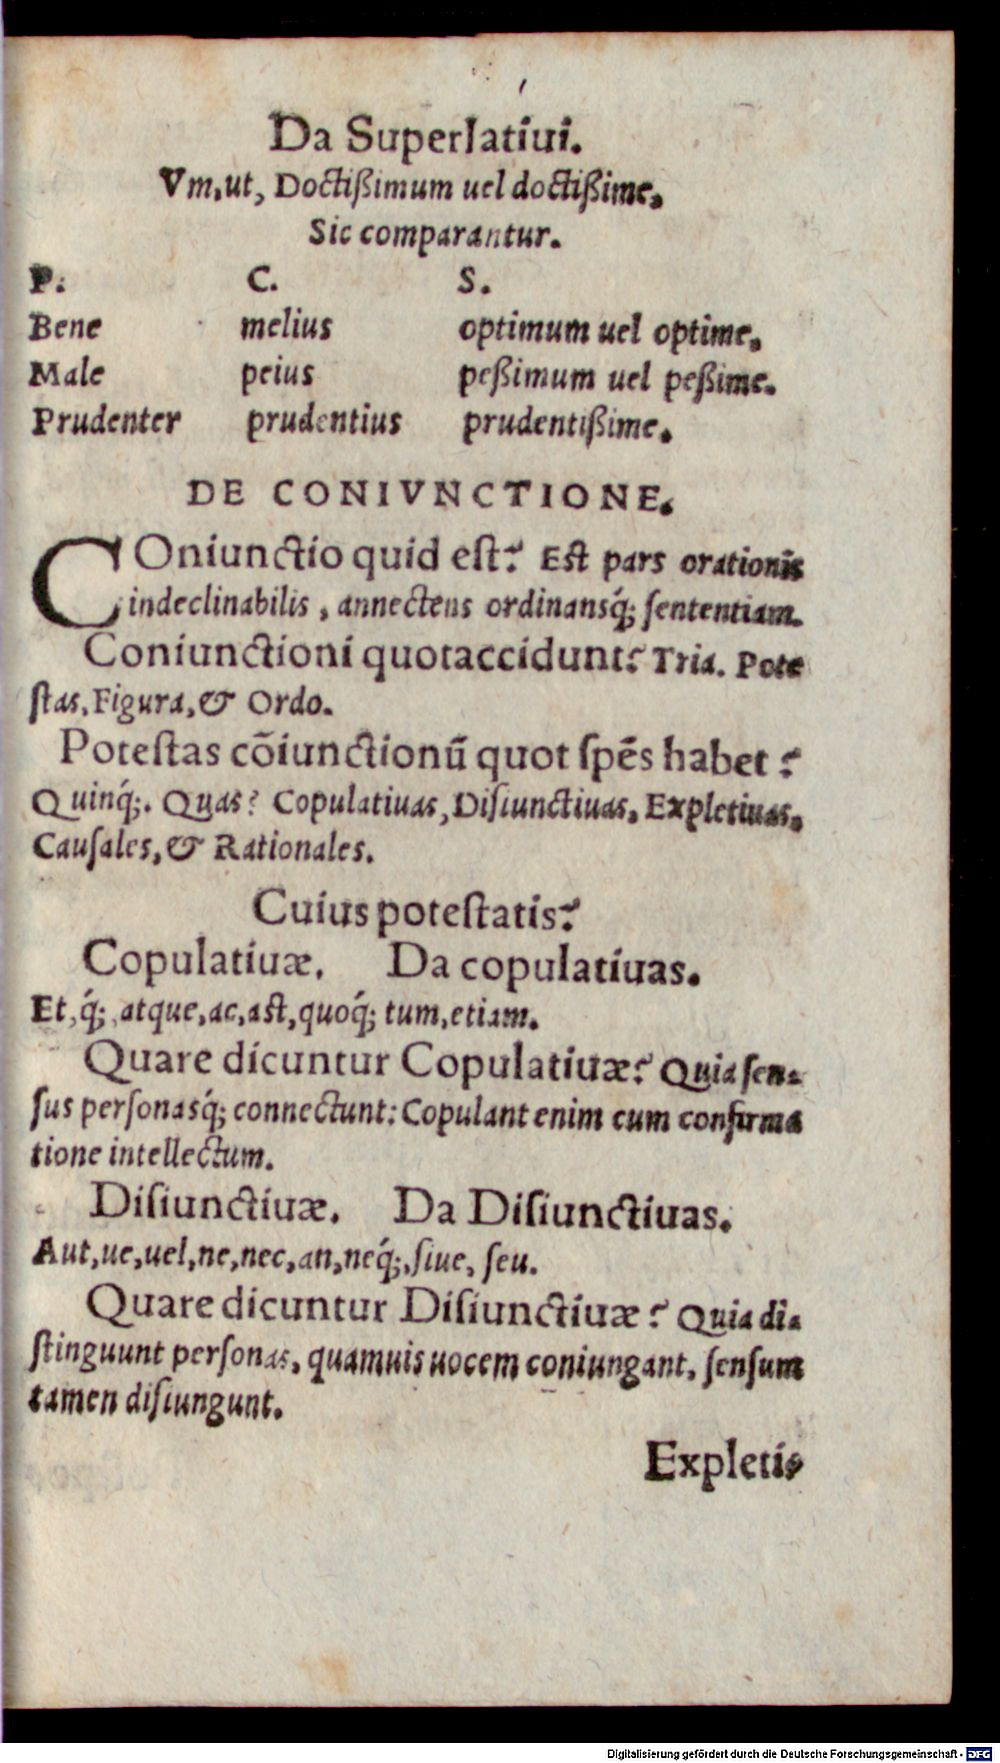 Da Superlatiui.
Vm.ut, Doctißimum uel doctißime.
Sic comparantur.
P. C. S.
Bene melius optimum uel optime.
Male peius peßimum uel peßime.
Prudenter prudentius prudentißime.
DE CONIVNCTIONE.
COniunctio quid eſt? Eſt pars orationis
indeclinabilis, annectens ordinansq́; ſententiam.
Coniunctioni quotaccidunt? Tria. Pote
ſtas, Figura, & Ordo.
Poteſtas cōiunctionū quot ſpēs habet?
Quinq́;. Quas? Copulatiuas, Diſiunctiuas, Expletiuas,
Cauſales, & Rationales.
Cuius poteſtatis?
Copulatiuæ. Da copulatiuas.
Et, q́;, atque, ac, aſt, quoq́; tum, etiam.
Quare dicuntur Copulatiuæ? Quia ſen-
ſus perſonasq́; connectunt: Copulant enim cum confirma
tione intellectum.
Diſiunctiuæ. Da Diſiunctiuas.
Aut, ue, uel, ne, nec, an, neq́;, ſiue, ſeu.
Quare dicuntur Diſiunctiuæ? Quia di-
ſtinguunt perſonas, quamuis uocem coniungant, ſenſum
tamen diſiungunt.
Expleti-
Digitalisierung gefördert durch die Deutsche Forschungsgemeinschaft - DFG